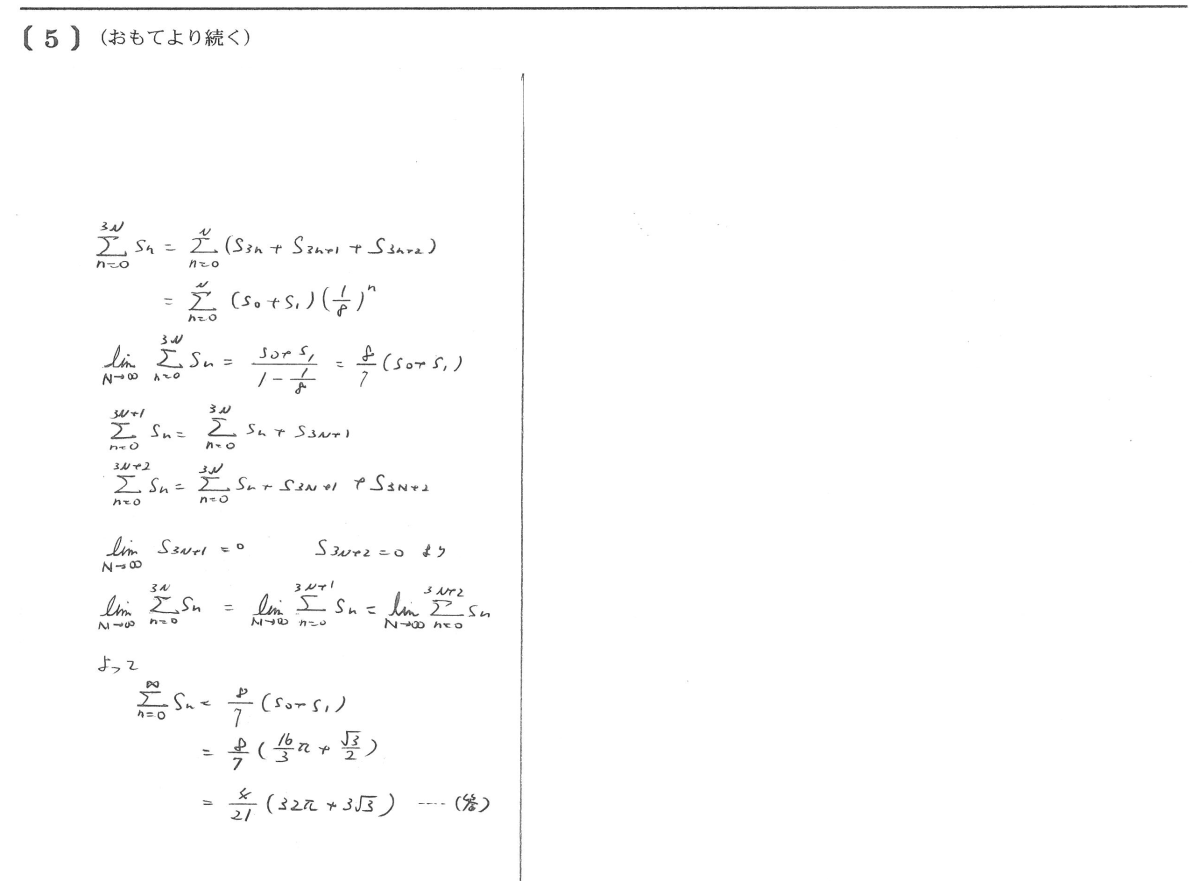 〔 5 〕 (おもてより続く)
\sum_{n=0}^{3N} S_n = \sum_{n=0}^{N} (S_{3n} + S_{3n+1} + S_{3n+2})
= \sum_{n=0}^{N} (S_0 + S_1) (\frac{1}{8})^n
\lim_{N→∞} \sum_{n=0}^{3N} S_n = \frac{S_0 + S_1}{1 - \frac{1}{8}} = \frac{8}{7} (S_0 + S_1)
\sum_{n=0}^{3N+1} S_n = \sum_{n=0}^{3N} S_n + S_{3N+1}
\sum_{n=0}^{3N+2} S_n = \sum_{n=0}^{3N} S_n + S_{3N+1} + S_{3N+2}
\lim_{N→∞} S_{3N+1} = 0 S_{3N+2} = 0 より
\lim_{N→∞} \sum_{n=0}^{3N} S_n = \lim_{N→∞} \sum_{n=0}^{3N+1} S_n = \lim_{N→∞} \sum_{n=0}^{3N+2} S_n
よって
\sum_{n=0}^{∞} S_n = \frac{8}{7} (S_0 + S_1)
= \frac{8}{7} (\frac{16}{3}π + \frac{\sqrt{3}}{2})
= \frac{4}{21} (32π + 3\sqrt{3}) ---- (答)